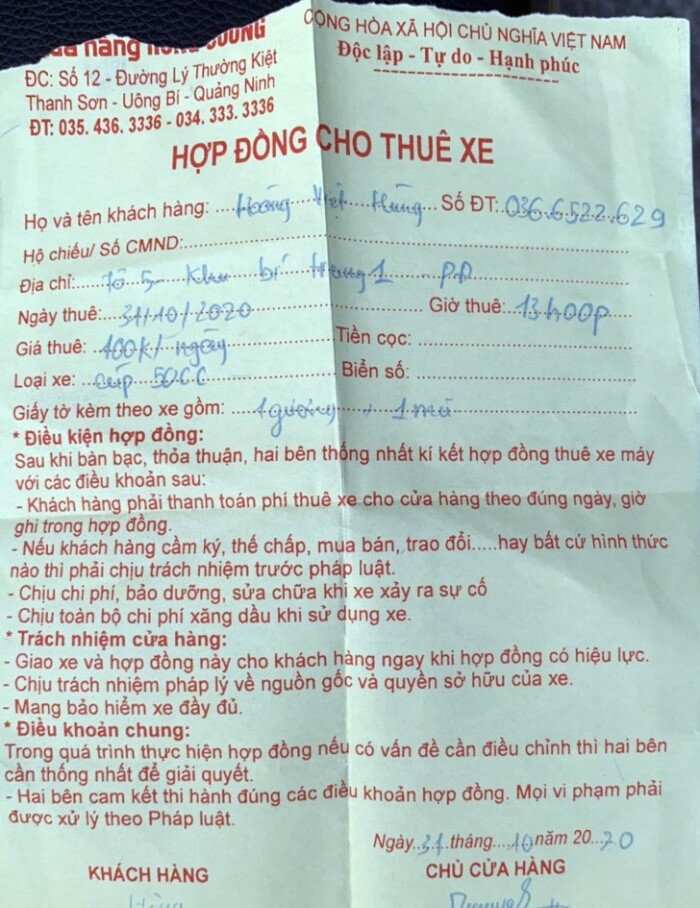 CỘNG HÒA XÃ HỘI CHỦ NGHĨA VIỆT NAM
Độc lập - Tự do - Hạnh phúc
ĐC: Số 12 - Đường Lý Thường Kiệt
Thanh Sơn - Uông Bí - Quảng Ninh
ĐT: 035. 436. 3336 - 034. 333. 3336
HỢP ĐỒNG CHO THUÊ XE
Họ và tên khách hàng: Hoàng Việt Hùng Số ĐT: 036.6522.629
Hộ chiếu/ Số CMND:
Địa chỉ: Tổ 5 - Khu bí trung 1 PĐ
Ngày thuê: 31/10/2020 Giờ thuê: 13h00p
Giá thuê: 100k/ngày Tiền cọc:
Loại xe: cúp 50CC Biển số:
Giấy tờ kèm theo xe gồm: 1 gương + 1 mũ
* Điều kiện hợp đồng:
Sau khi bàn bạc, thỏa thuận, hai bên thống nhất kí kết hợp đồng thuê xe máy
với các điều khoản sau:
- Khách hàng phải thanh toán phí thuê xe cho cửa hàng theo đúng ngày, giờ
ghi trong hợp đồng.
- Nếu khách hàng cầm ký, thế chấp, mua bán, trao đổi.....hay bất cứ hình thức
nào thì phải chịu trách nhiệm trước pháp luật.
- Chịu chi phí, bảo dưỡng, sửa chữa khi xe xảy ra sự cố
- Chịu toàn bộ chi phí xăng dầu khi sử dụng xe.
* Trách nhiệm cửa hàng:
- Giao xe và hợp đồng này cho khách hàng ngay khi hợp đồng có hiệu lực.
- Chịu trách nhiệm pháp lý về nguồn gốc và quyền sở hữu của xe.
- Mang bảo hiểm xe đầy đủ.
* Điều khoản chung:
Trong quá trình thực hiện hợp đồng nếu có vấn đề cần điều chỉnh thì hai bên
cần thống nhất để giải quyết.
- Hai bên cam kết thi hành đúng các điều khoản hợp đồng. Mọi vi phạm phải
được xử lý theo Pháp luật.
Ngày 31 tháng 10 năm 2020
KHÁCH HÀNG CHỦ CỬA HÀNG